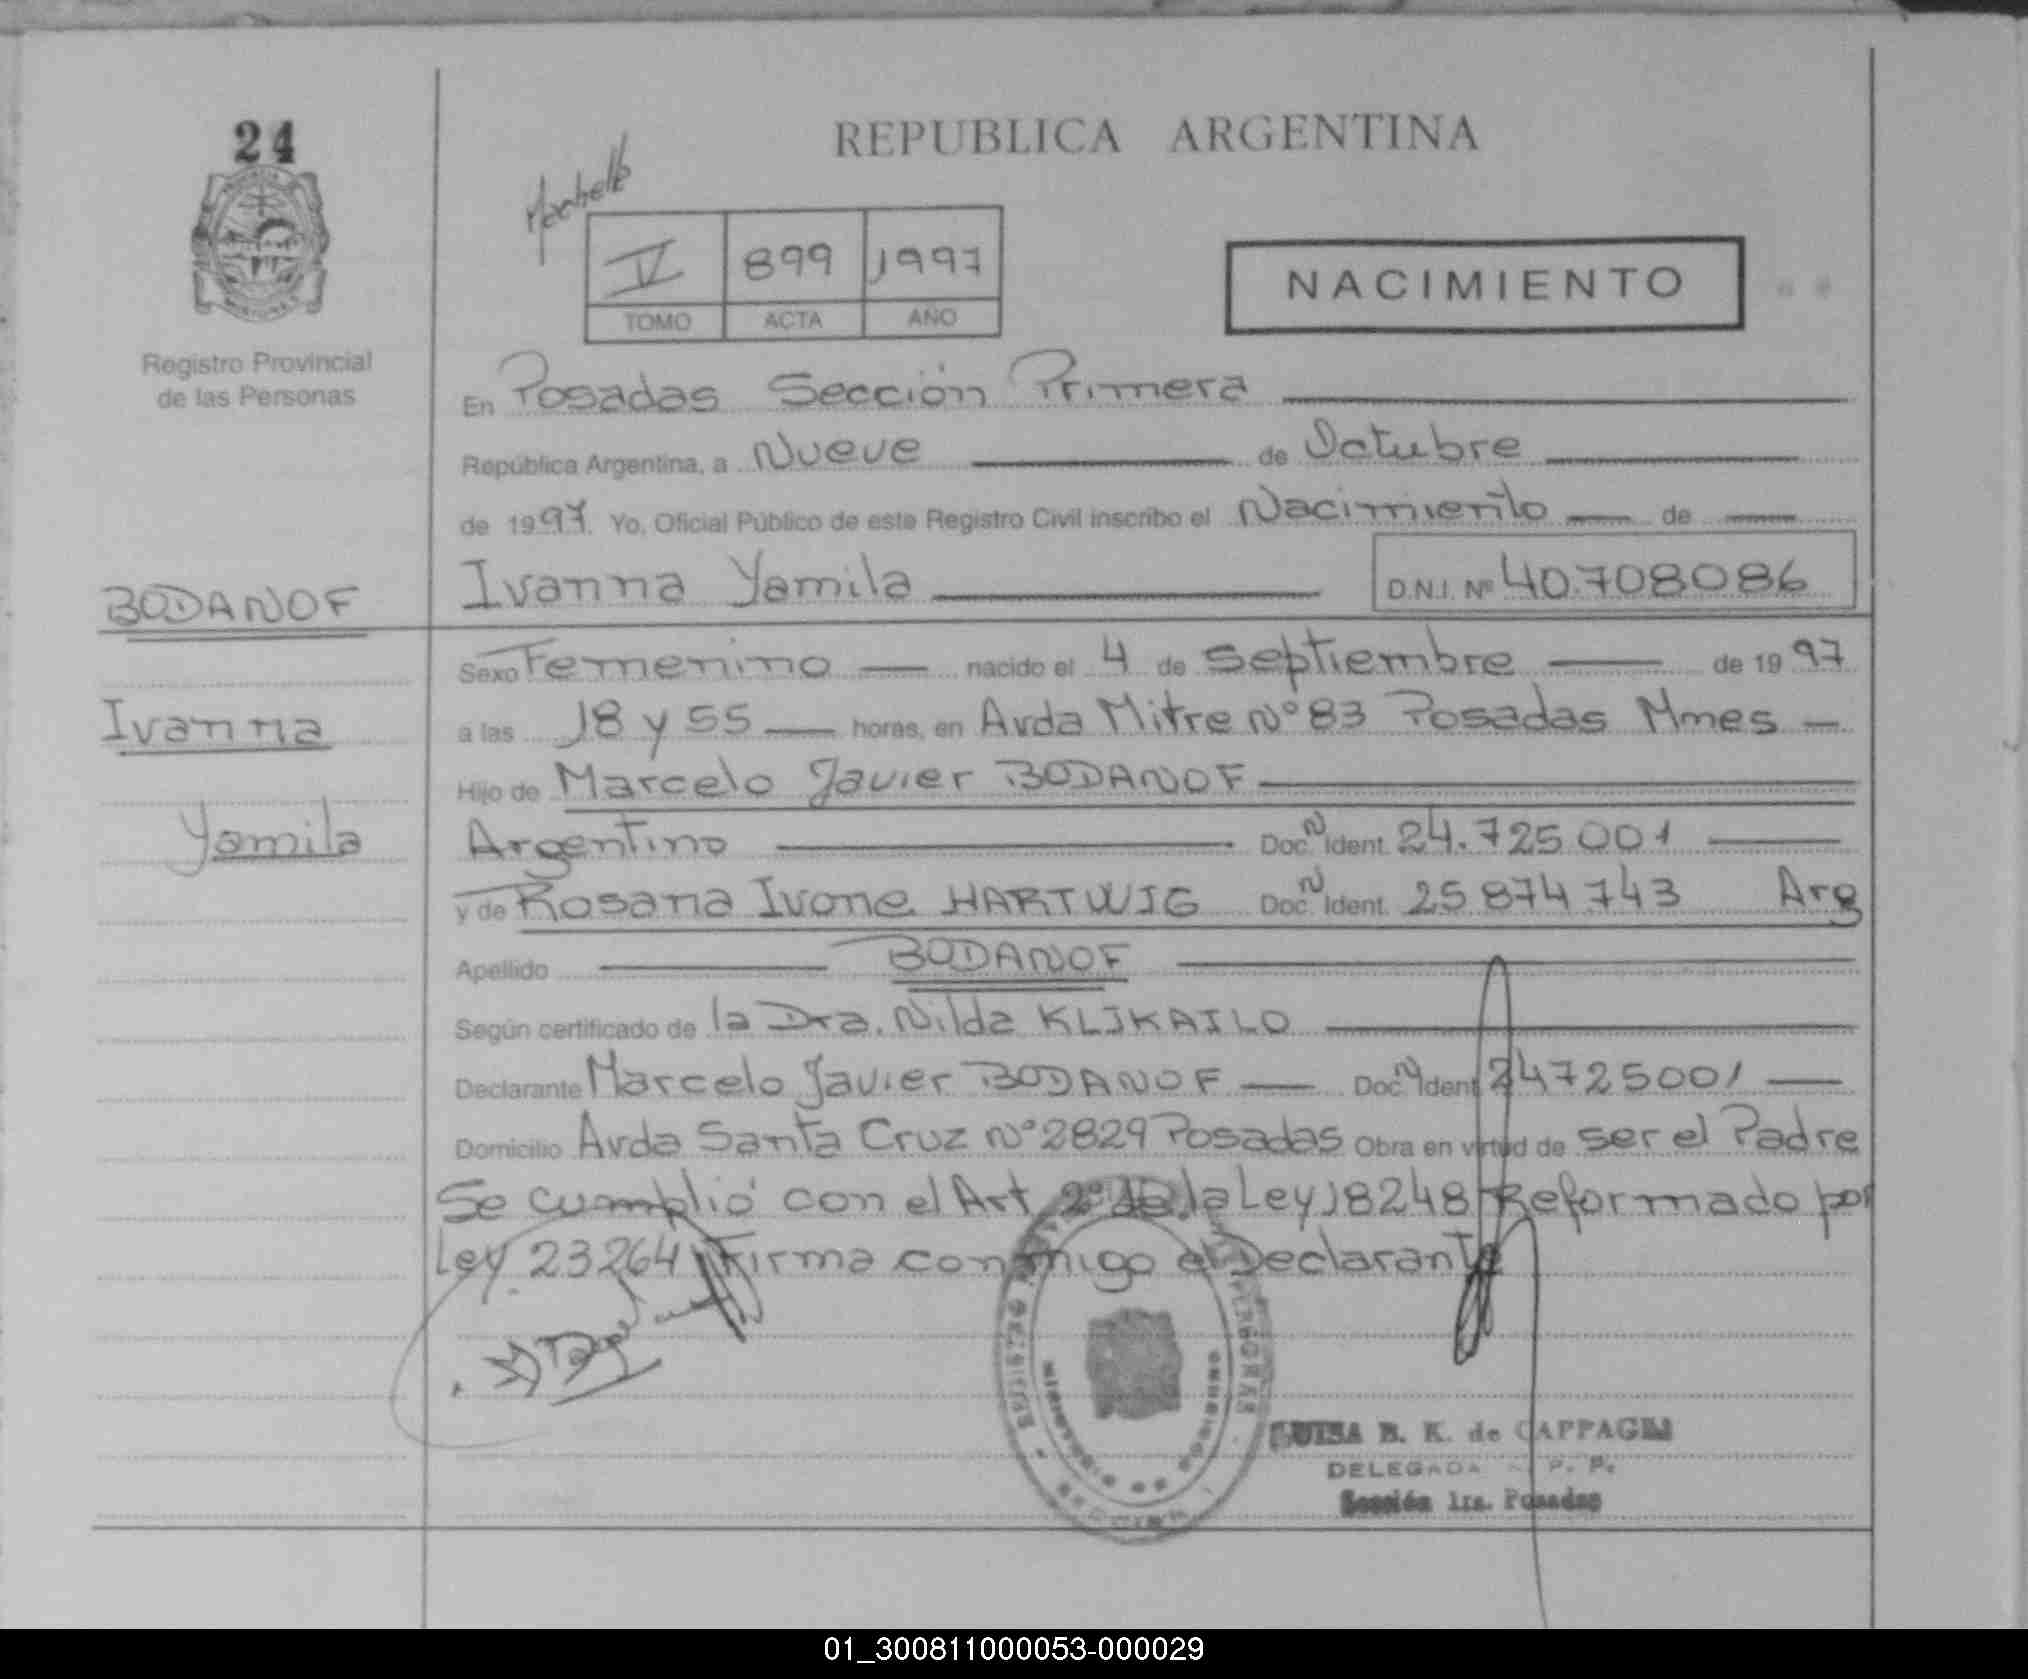 24
REPUBLICA ARGENTINA
IV 899 1997
TOMO ACTA AÑO
NACIMIENTO
Registro Provincial
de las Personas
En Posadas Sección Primera
República Argentina, a Nueve de Octubre
de 1997. Yo, Oficial Público de este Registro Civil inscribo el Nacimiento de
BODANOF Ivanna Yamila D.N.I. Nº 40.708086
Sexo Femenino nacido el 4 de Septiembre de 1997
Ivanna a las 18 y 55 horas, en Avda Mitre Nº 83 Posadas Mnes
Hijo de Marcelo Javier BODANOF
Yamila Argentino Doc. N Ident. 24.725 001
y de Rosana Ivone HARTWIG Doc. N Ident. 25 874 743 Arg
Apellido BODANOF
Según certificado de la Dra. Nilda KLIKAILO
Declarante Marcelo Javier BODANOF Doc. N Ident. 24725001
Domicilio Avda Santa Cruz Nº 2829 Posadas Obra en virtud de ser el Padre
Se cumplió con el Art 2º de la Ley 18248 Reformado por
Ley 23264 Firma conmigo el Declarante
LUISA B. K. de CAPPAGLI
DELEGADA R. P. P.
Sección 1ra. Posadas
01_300811000053-000029